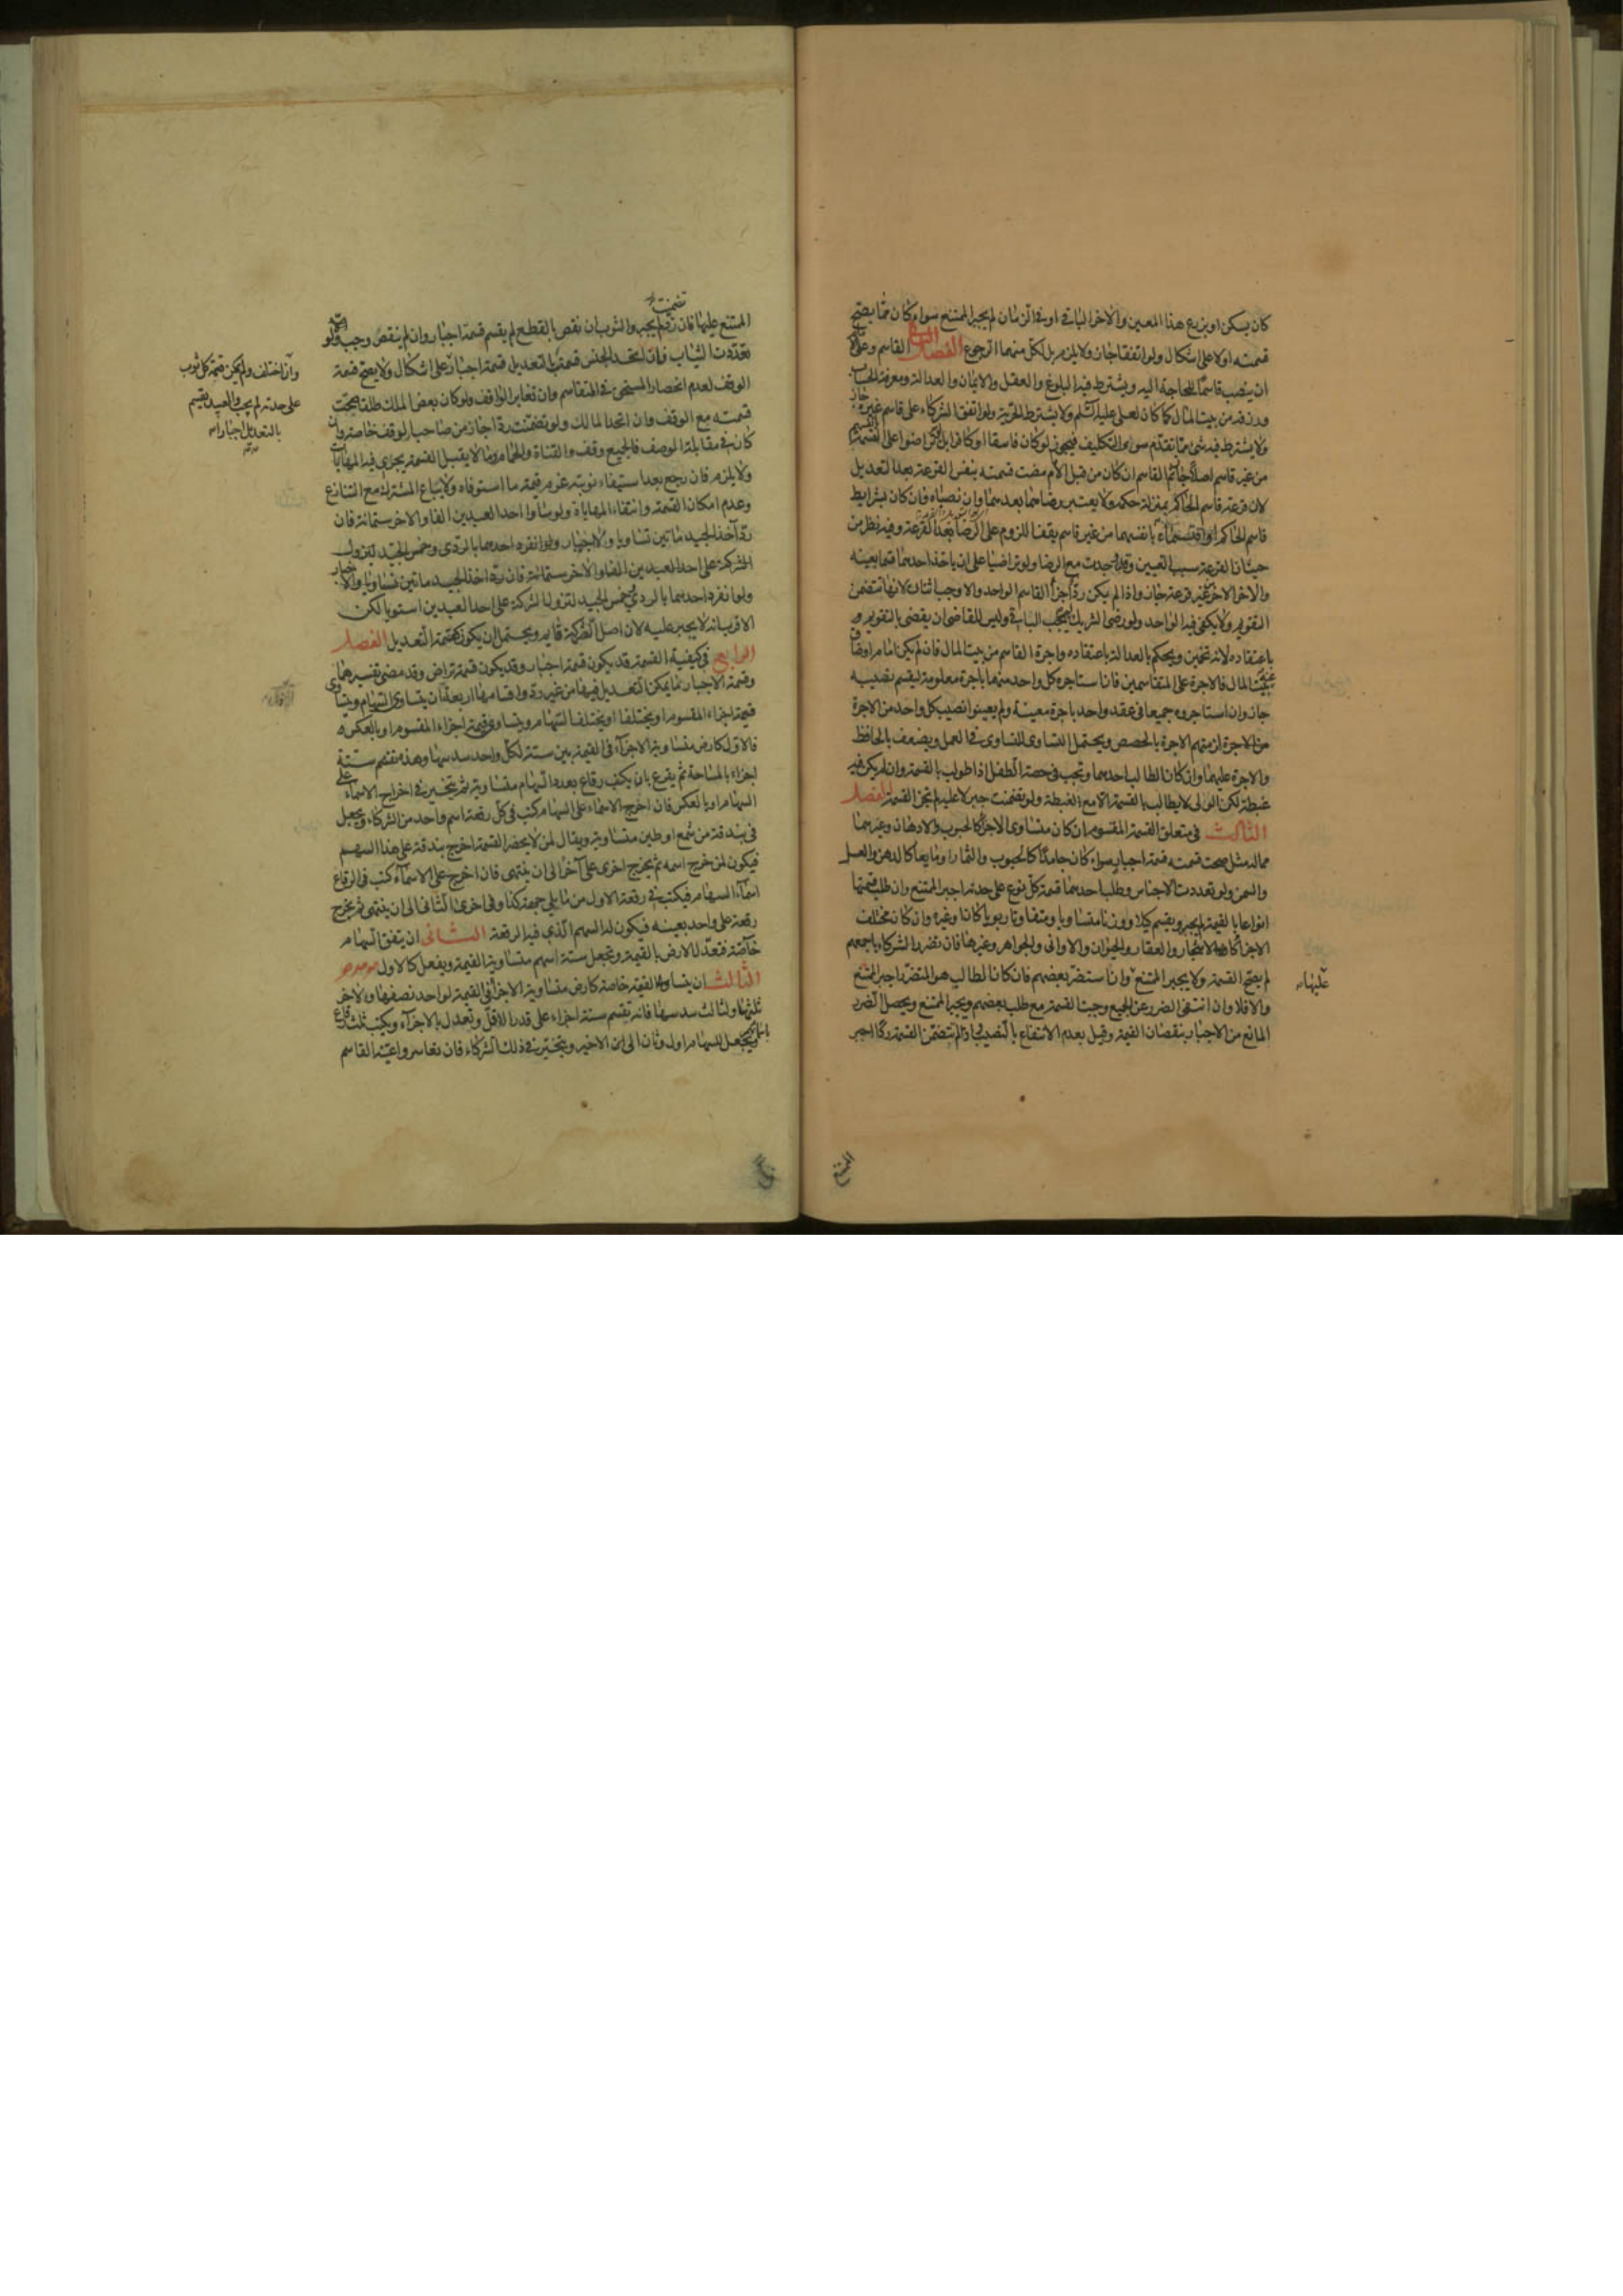 كان يسكن او يزرع هذا المعين والاخر الباقى او فى الزمان لم يجبر الممتنع سواء كان مما يصح
قسمته اولا على اشكال ولو اتفقا جاز ولا يلزم بل لكل منهما الرجوع الفصل القاسم وعلى
ان ينصب قاسما للحاجة اليه ويشترط فيه البلوغ والعقل والايمان والعدالة ومعرفة الحساب
ورزقه من بيت المال كما كان لعلى عليه السلم ولا يشترط الحرية ولو اتفق الشركاء على قاسم غيره جاز
ولا يشترط فيه شئ مما تقدم سوى التكليف فيجوز لو كان فاسقا او كافرا بل لو تراضوا على القسمة
من غير قاسم اصلا جاز ثم القاسم ان كان من قبل الامام مضت قسمته بنفس القرعة بعد التعديل
لان قرعة قاسم الحاكم بمنزلة حكمه ولا يعتبر رضاهما بعدها وان نصباه فان كان بشرايط
قاسم الحاكم او اقتسما بانفسهما من غير قاسم يقف اللزوم على الرضا بعد القرعة وفيه نظر من
حيث ان القرعة سبب التعيين وقد وجدت مع الرضا ولو تراضيا على ان ياخذ احدهما قسما بعينه
والاخر الاخر من غير قرعة جاز واذا لم يكن رد اجزأ القاسم الواحد والا وجب اثنان لانها تتضمن
التقويم ولا يكفى فيه الواحد ولو رضى الشريك لم يجب الثانى وليس للقاضى ان يقضى بالتقويم
باعتقاده لانه تخمين ويحكم بالعدالة باعتقاده واجرة القاسم من بيت المال فان لم يكن امام او ضاق
بيت المال فالاجرة على المتقاسمين فان استاجره كل واحد منهما باجرة معلومة ليقسم نصيبه
جاز وان استاجروه جميعا فى عقد واحد باجرة معينة ولم يعينوا نصيب كل واحد من الاجرة
من الاجرة لزمتهم الاجرة بالحصص ويحتمل التساوى للتساوى فى العمل ويضعف بالحافظ
والاجرة عليهما وان كان الطالب احدهما وتجب فى حصة الطفل اذا طولب بالقسمة وان لم يكن فيه
غبطة لكن الولى لا يطالب بالقسمة الا مع الغبطة ولو تضمنت جبرا عليه لم تجز القسمة الفصل
الثالث فى متعلق القسمة المقسوم ان كان متساوى الاجزاء كالحبوب والادهان وغيرهما
مما له مثل صحت قسمته قسمة اجبار سواء كان جامدا كالحبوب والثمار او مايعا كالدهن والعسل
والسمن ولو تعددت الاجناس وطلب احدهما قسمة كل نوع على حدته اجبر الممتنع وان طلب قسمتها
انواعا بالقيمة لم يجبر ويقسم كيلا ووزنا متساويا ومتفاوتا ربويا كان او غيره وان كان مختلف
الاجزاء كالاشجار والعقار والحيوان والاوانى والجواهر وغيرها فان تضرر الشركاء باجمعهم
لم يصح القسمة ولا يجبر الممتنع وان استضر بعضهم فان كان الطالب هو المتضرر اجبر الممتنع عليها
والا فلا وان انتفى الضرر عن الجميع وجبت القسمة مع طلب بعضهم ويجبر الممتنع ويحصل الضرر
المانع من الاجبار بنقصان القيمة وقيل بعدم الانتفاع بالنصيب اذا لم تتضمن القسمة ردا اجبر
الممتنع
الممتنع عليها فان تضمنت ردا لم يجبر والثوب ان نقص بالقطع لم يقسم قسمة اجبار وان لم ينقص وجب ولو
تعددت الثياب فان اتحد الجنس قسمت بالتعديل قسمة اجبار على اشكال ولا يصح قسمة
وان اختلف ولم يكن قسمة كل ثوب
على حدته لم يجب والعبيد تقسيم
بالتعديل اجبارا
الوقف لعدم انحصار المستحق فى المتقاسم وان تغاير الواقف ولو كان بعض الملك طلقا صحت
قسمته مع الوقف وان اتحد المالك ولو تضمنت ردا جاز من صاحب الوقف خاصة وان
كان فى مقابلة الوصف فالجميع وقف والقناة والحمام وما لا يقبل القسمة يجرى فيه المهاياة
ولا يلزم فان رجع بعد استيفاء نوبته غرم قيمة ما استوفاه ولا يباع المشترك مع التنازع
وعدم امكان القسمة وانتفاء المهاياة ولو ساوا احد العبدين الفا والاخر ستمائة فان
رد آخذ الجيد مائتين تساويا ولا اجبار ولو انفرد احدهما بالردى وخمس الجيد ليزول
الشركة على احد العبدين الفا والاخر ستمائة فان رد اخذ الجيد مائتين تساويا ولا اجبار
ولو انفرد احدهما بالردى وخمس الجيد لتزول الشركة على احد العبدين استويا لكن
الاقرب انه لا يجبر عليه لان اصل الشركة قايم ويحتمل ان يكون كقسمة التعديل الفصل
الرابع فى كيفية القسمة قد يكون قسمة اجبار وقد يكون قسمة تراض وقد مضى تفسيرهما
وقسمة الاجبار ما يمكن التعديل فيها من غير رد واقسامها اربعة ان يتساوى السهام ويتساوى
قيمة اجزاء المقسوم او يختلفا او يختلف السهام ويتساوى قيمة اجزاء المقسوم او بالعكس
فالاول كارض متساوية الاجزاء فى القيمة بين ستة لكل واحد سدسها وهذه تقسم ستة
اجزاء بالمساحة ثم يقرع بان يكتب رقاع بعدد السهام متساوية ثم يتخير فى اخراج الاسماء على
السهام او بالعكس فان اخرج الاسماء على السهام كتب فى كل رقعة اسم واحد من الشركاء ويجعل
فى بندقة من شمع او طين متساوية ويقال لمن لا يحضر القسمة اخرج بندقة على هذا السهم
فيكون لمن خرج اسمه ثم يخرج اخرى على آخر الى ان ينتهى فان اخرج على الاسماء كتب فى الرقاع
اسماء السهام فيكتب فى رقعة الاول من ما يلى جهة كذا وفى اخرى الثانى الى ان ينتهى ثم يخرج
رقعة على واحد بعينه فيكون له السهم الذى فى الرقعة الثانى ان يتفق السهام
خاصة فتعدل الارض بالقيمة وتجعل ستة اسهم متساوية القيمة ويفعل كالاول
الثالث ان يتساوى القيمة خاصة كارض متساوية الاجزاء فى القيمة لواحد نصفها ولاخر
ثلثها ولثالث سدسها فانه يقسم ستة اجزاء على قدر الاقل وتعدل بالاجزاء ويكتب ثلث رقاع
ويجعل للسهام اول وثان الى ان الاخير ويتخير فى ذلك الشركاء فان تعاسروا عينه القاسم